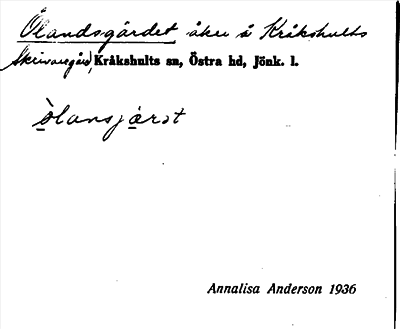 Ölandsgärdet åker å Kråkshults
Skrivaregård, Kråkshults sn, Östra hd, Jönk. l.
ö̀lansjä̱rət
Annalisa Anderson 1936